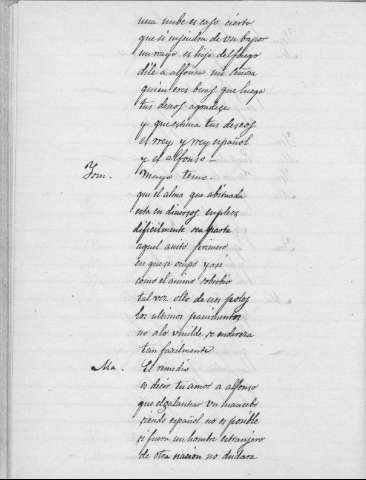 una nube es caso cierto
que si enjendra de un bapor
un rayo es hijo del fuego
dile a alfonso mi señora
quien eres beras que luego
tus deseos agradeçe
y que estima tus deseos
el rrey y rrey español
y el alfonso —
Tom. Mayo temo.
que el alma que abituada
esta en diversos empleos
dificilmente se aparta
aquel auito primero
en que se ocupo y asi
como el animo soberbio
tal vez ollo de los
los ultimos pauimentos
no a lo umilde se endereza
tan facilmente
Ma. El remedio
es decir tu amor a alfonso
que el galantear un mancebo
siendo español no es posible
si fuera un hombre estranjero
de otra nacion no dudara